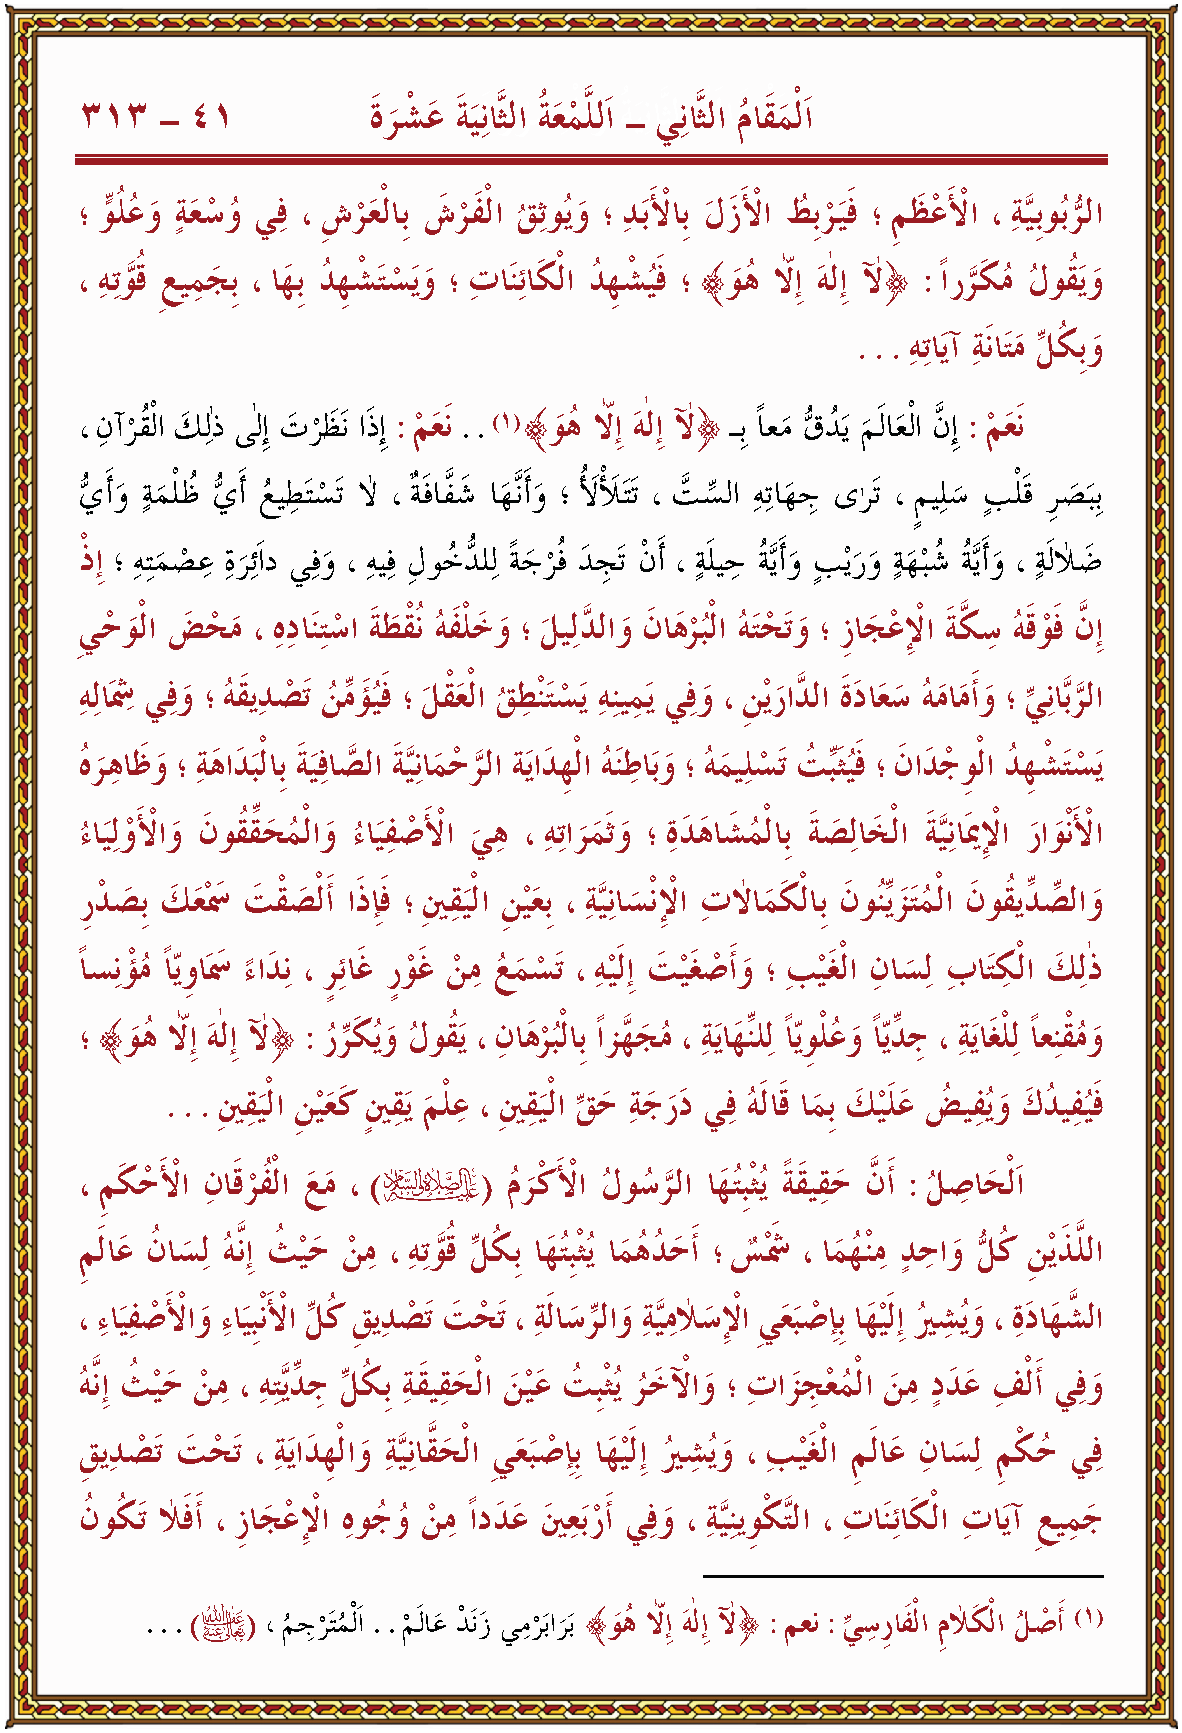 اَلْمَقَامُ الثَّانِي – اَللَّمْعَةُ الثَّانِيَةَ عَشْرَةَ ٤١ – ٣١٣
الرُّبُوبِيَّةِ ، الْأَعْظَمِ ؛ فَيَرْبِطُ الْأَزَلَ بِالْأَبَدِ ؛ وَيُوثِقُ الْفَرْشَ بِالْعَرْشِ ، فِي وُسْعَةٍ وَعُلُوٍّ ؛
وَيَقُولُ مُكَرَّراً : ﴿لَآ إِلٰهَ إِلَّا هُوَ﴾ ؛ فَيُشْهِدُ الْكَائِنَاتِ ؛ وَيَسْتَشْهِدُ بِهَا ، بِجَمِيعِ قُوَّتِهِ ،
وَبِكُلِّ مَتَانَةِ آيَاتِهِ . . .
نَعَمْ : إِنَّ الْعَالَمَ يَدُقُّ مَعاً بِـ ﴿لَآ إِلٰهَ إِلَّا هُوَ﴾(١) . . نَعَمْ : إِذَا نَظَرْتَ إِلٰى ذٰلِكَ الْقُرْآنِ ،
بِبَصَرِ قَلْبٍ سَلِيمٍ ، تَرٰى جِهَاتِهِ السِّتَّ ، تَتَلَأْلَأُ ؛ وَأَنَّهَا شَفَّافَةٌ ، لَا تَسْتَطِيعُ أَيُّ ظُلْمَةٍ وَأَيُّ
ضَلَالَةٍ ، وَأَيَّةُ شُبْهَةٍ وَرَيْبٍ وَأَيَّةُ حِيلَةٍ ، أَنْ تَجِدَ فُرْجَةً لِلدُّخُولِ فِيهِ ، وَفِي دَائِرَةِ عِصْمَتِهِ ؛ إِذْ
إِنَّ فَوْقَهُ سِكَّةَ الْإِعْجَازِ ؛ وَتَحْتَهُ الْبُرْهَانَ وَالدَّلِيلَ ؛ وَخَلْفَهُ نُقْطَةَ اسْتِنَادِهِ ، مَحْضَ الْوَحْيِ
الرَّبَّانِيِّ ؛ وَأَمَامَهُ سَعَادَةَ الدَّارَيْنِ ، وَفِي يَمِينِهِ يَسْتَنْطِقُ الْعَقْلَ ؛ فَيُؤَمِّنُ تَصْدِيقَهُ ؛ وَفِي شِمَالِهِ
يَسْتَشْهِدُ الْوِجْدَانَ ؛ فَيُثَبِّتُ تَسْلِيمَهُ ؛ وَبَاطِنَهُ الْهِدَايَةَ الرَّحْمَانِيَّةَ الصَّافِيَةَ بِالْبَدَاهَةِ ؛ وَظَاهِرَهُ
الْأَنْوَارَ الْإِيمَانِيَّةَ الْخَالِصَةَ بِالْمُشَاهَدَةِ ؛ وَثَمَرَاتِهِ ، هِيَ الْأَصْفِيَاءُ وَالْمُحَقِّقُونَ وَالْأَوْلِيَاءُ
وَالصِّدِّيقُونَ الْمُتَزَيِّنُونَ بِالْكَمَالَاتِ الْإِنْسَانِيَّةِ ، بِعَيْنِ الْيَقِينِ ؛ فَإِذَا أَلْصَقْتَ سَمْعَكَ بِصَدْرِ
ذٰلِكَ الْكِتَابِ لِسَانِ الْغَيْبِ ؛ وَأَصْغَيْتَ إِلَيْهِ ، تَسْمَعُ مِنْ غَوْرٍ غَائِرٍ ، نِدَاءً سَمَاوِيّاً مُؤْنِساً
وَمُقْنِعاً لِلْغَايَةِ ، جِدِّيّاً وَعُلْوِيّاً لِلنِّهَايَةِ ، مُجَهَّزاً بِالْبُرْهَانِ ، يَقُولُ وَيُكَرِّرُ : ﴿لَآ إِلٰهَ إِلَّا هُوَ﴾ ؛
فَيُفِيدُكَ وَيُفِيضُ عَلَيْكَ بِمَا قَالَهُ فِي دَرَجَةِ حَقِّ الْيَقِينِ ، عِلْمَ يَقِينٍ كَعَيْنِ الْيَقِينِ . . .
اَلْحَاصِلُ : أَنَّ حَقِيقَةً يُثْبِتُهَا الرَّسُولُ الْأَكْرَمُ (عَلَيْهِ الصَّلَاةُ وَالسَّلَامُ) ، مَعَ الْفُرْقَانِ الْأَحْكَمِ ،
اللَّذَيْنِ كُلُّ وَاحِدٍ مِنْهُمَا ، شَمْسٌ ؛ أَحَدُهُمَا يُثْبِتُهَا بِكُلِّ قُوَّتِهِ ، مِنْ حَيْثُ إِنَّهُ لِسَانُ عَالَمِ
الشَّهَادَةِ ، وَيُشِيرُ إِلَيْهَا بِإِصْبَعَيِ الْإِسْلَامِيَّةِ وَالرِّسَالَةِ ، تَحْتَ تَصْدِيقِ كُلِّ الْأَنْبِيَاءِ وَالْأَصْفِيَاءِ ،
وَفِي أَلْفِ عَدَدٍ مِنَ الْمُعْجِزَاتِ ؛ وَالْآخَرُ يُثْبِتُ عَيْنَ الْحَقِيقَةِ بِكُلِّ جِدِّيَّتِهِ ، مِنْ حَيْثُ إِنَّهُ
فِي حُكْمِ لِسَانِ عَالَمِ الْغَيْبِ ، وَيُشِيرُ إِلَيْهَا بِإِصْبَعَيِ الْحَقَّانِيَّةِ وَالْهِدَايَةِ ، تَحْتَ تَصْدِيقِ
جَمِيعِ آيَاتِ الْكَائِنَاتِ ، التَّكْوِينِيَّةِ ، وَفِي أَرْبَعِينَ عَدَداً مِنْ وُجُوهِ الْإِعْجَازِ ، أَفَلَا تَكُونُ
(١) أَصْلُ الْكَلَامِ الْفَارِسِيِّ : نعم : ﴿لَآ إِلٰهَ إِلَّا هُوَ﴾ بَرَابَرْمِي زَنَدْ عَالَمْ . . اَلْمُتَرْجِمُ ، (عَفَا اللهُ تَعَالٰى عَنْهُ) . . .